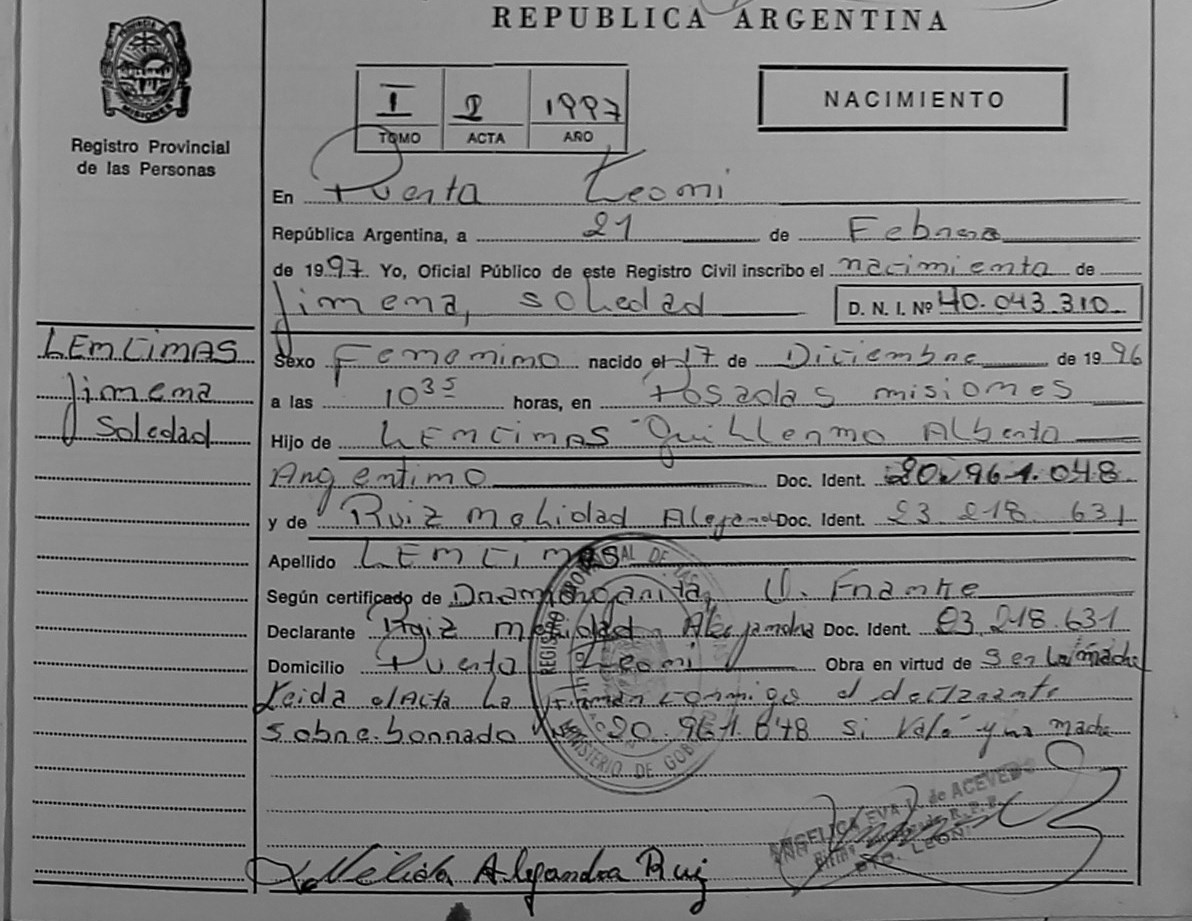 REPUBLICA ARGENTINA
PROVINCIA MISIONES
Registro Provincial
de las Personas
I 2 1997
TOMO ACTA AÑO
NACIMIENTO
En Puerto Leoni
República Argentina, a 21 de Febrero
de 1997. Yo, Oficial Público de este Registro Civil inscribo el nacimiento de
Jimena, Soledad D. N. I. Nº 40.043.310
LENCINAS
Jimena
Soledad
Sexo Femenino nacido el 17 de Diciembre de 1996
a las 10 35 horas, en Posadas misiones
Hijo de LENCINAS Guillermo Alberto
Argentino Doc. Ident. 20.961.048
y de Ruiz Alejandra Doc. Ident. 23 218 631
Apellido LENCINAS
Según certificado de
Declarante Ruiz Alejandra Doc. Ident. 23.218.631
Domicilio Puerto Leoni Obra en virtud de ser la madre
Leida el Acta La Firman conmigo el declarante
sobre borrado 20.961.048 si Vale y la madre
REGISTRO PROVINCIAL DE LAS
MINISTERIO DE GOB
ANGELICA EVA de ACEVEDO
PTO. LEONI
Nélida Alejandra Ruiz